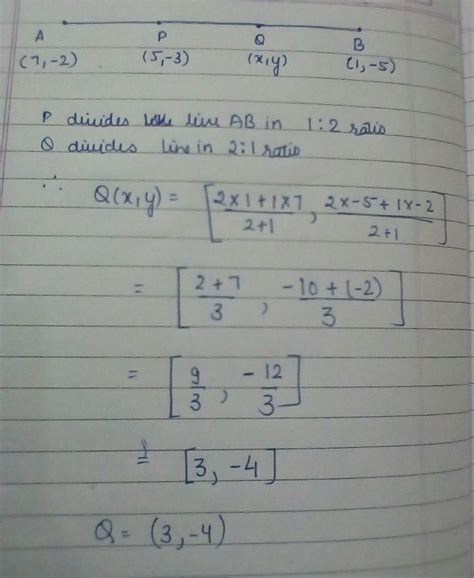 A P Q B
(7,-2) (5,-3) (x,y) (1,-5)
P divides line AB in 1:2 ratio
Q divides line in 2:1 ratio
∴ Q(x,y) = [2×1+1×7/2+1, 2×-5+1×-2/2+1]
= [2+7/3, -10+(-2)/3]
= [9/3, -12/3]
= [3, -4]
Q = (3,-4)